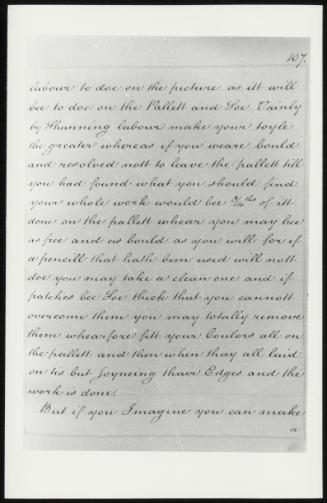 107.
labour to doe on the picture as itt will
bee to doe on the Pallett and Soe Vainly
by Shunning labour make your toyle
the greater whereas if you weare bould
and resolved nott to leave the pallett till
you had found what you should find
your whole work would bee 9/10ths of itt
done on the pallett whear you may bee
as free and as bould as you will for if
a pencill that hath been used will nott
doe you may take a clean one and if
patches bee Soe thick that you cannott
overcome them you may totally remove
them whearfore fitt your Coulors all on
the pallett and then when thay all laid
on tis but Joyneing thair Edges and the
work is done.
But if you Imagine you can make
a